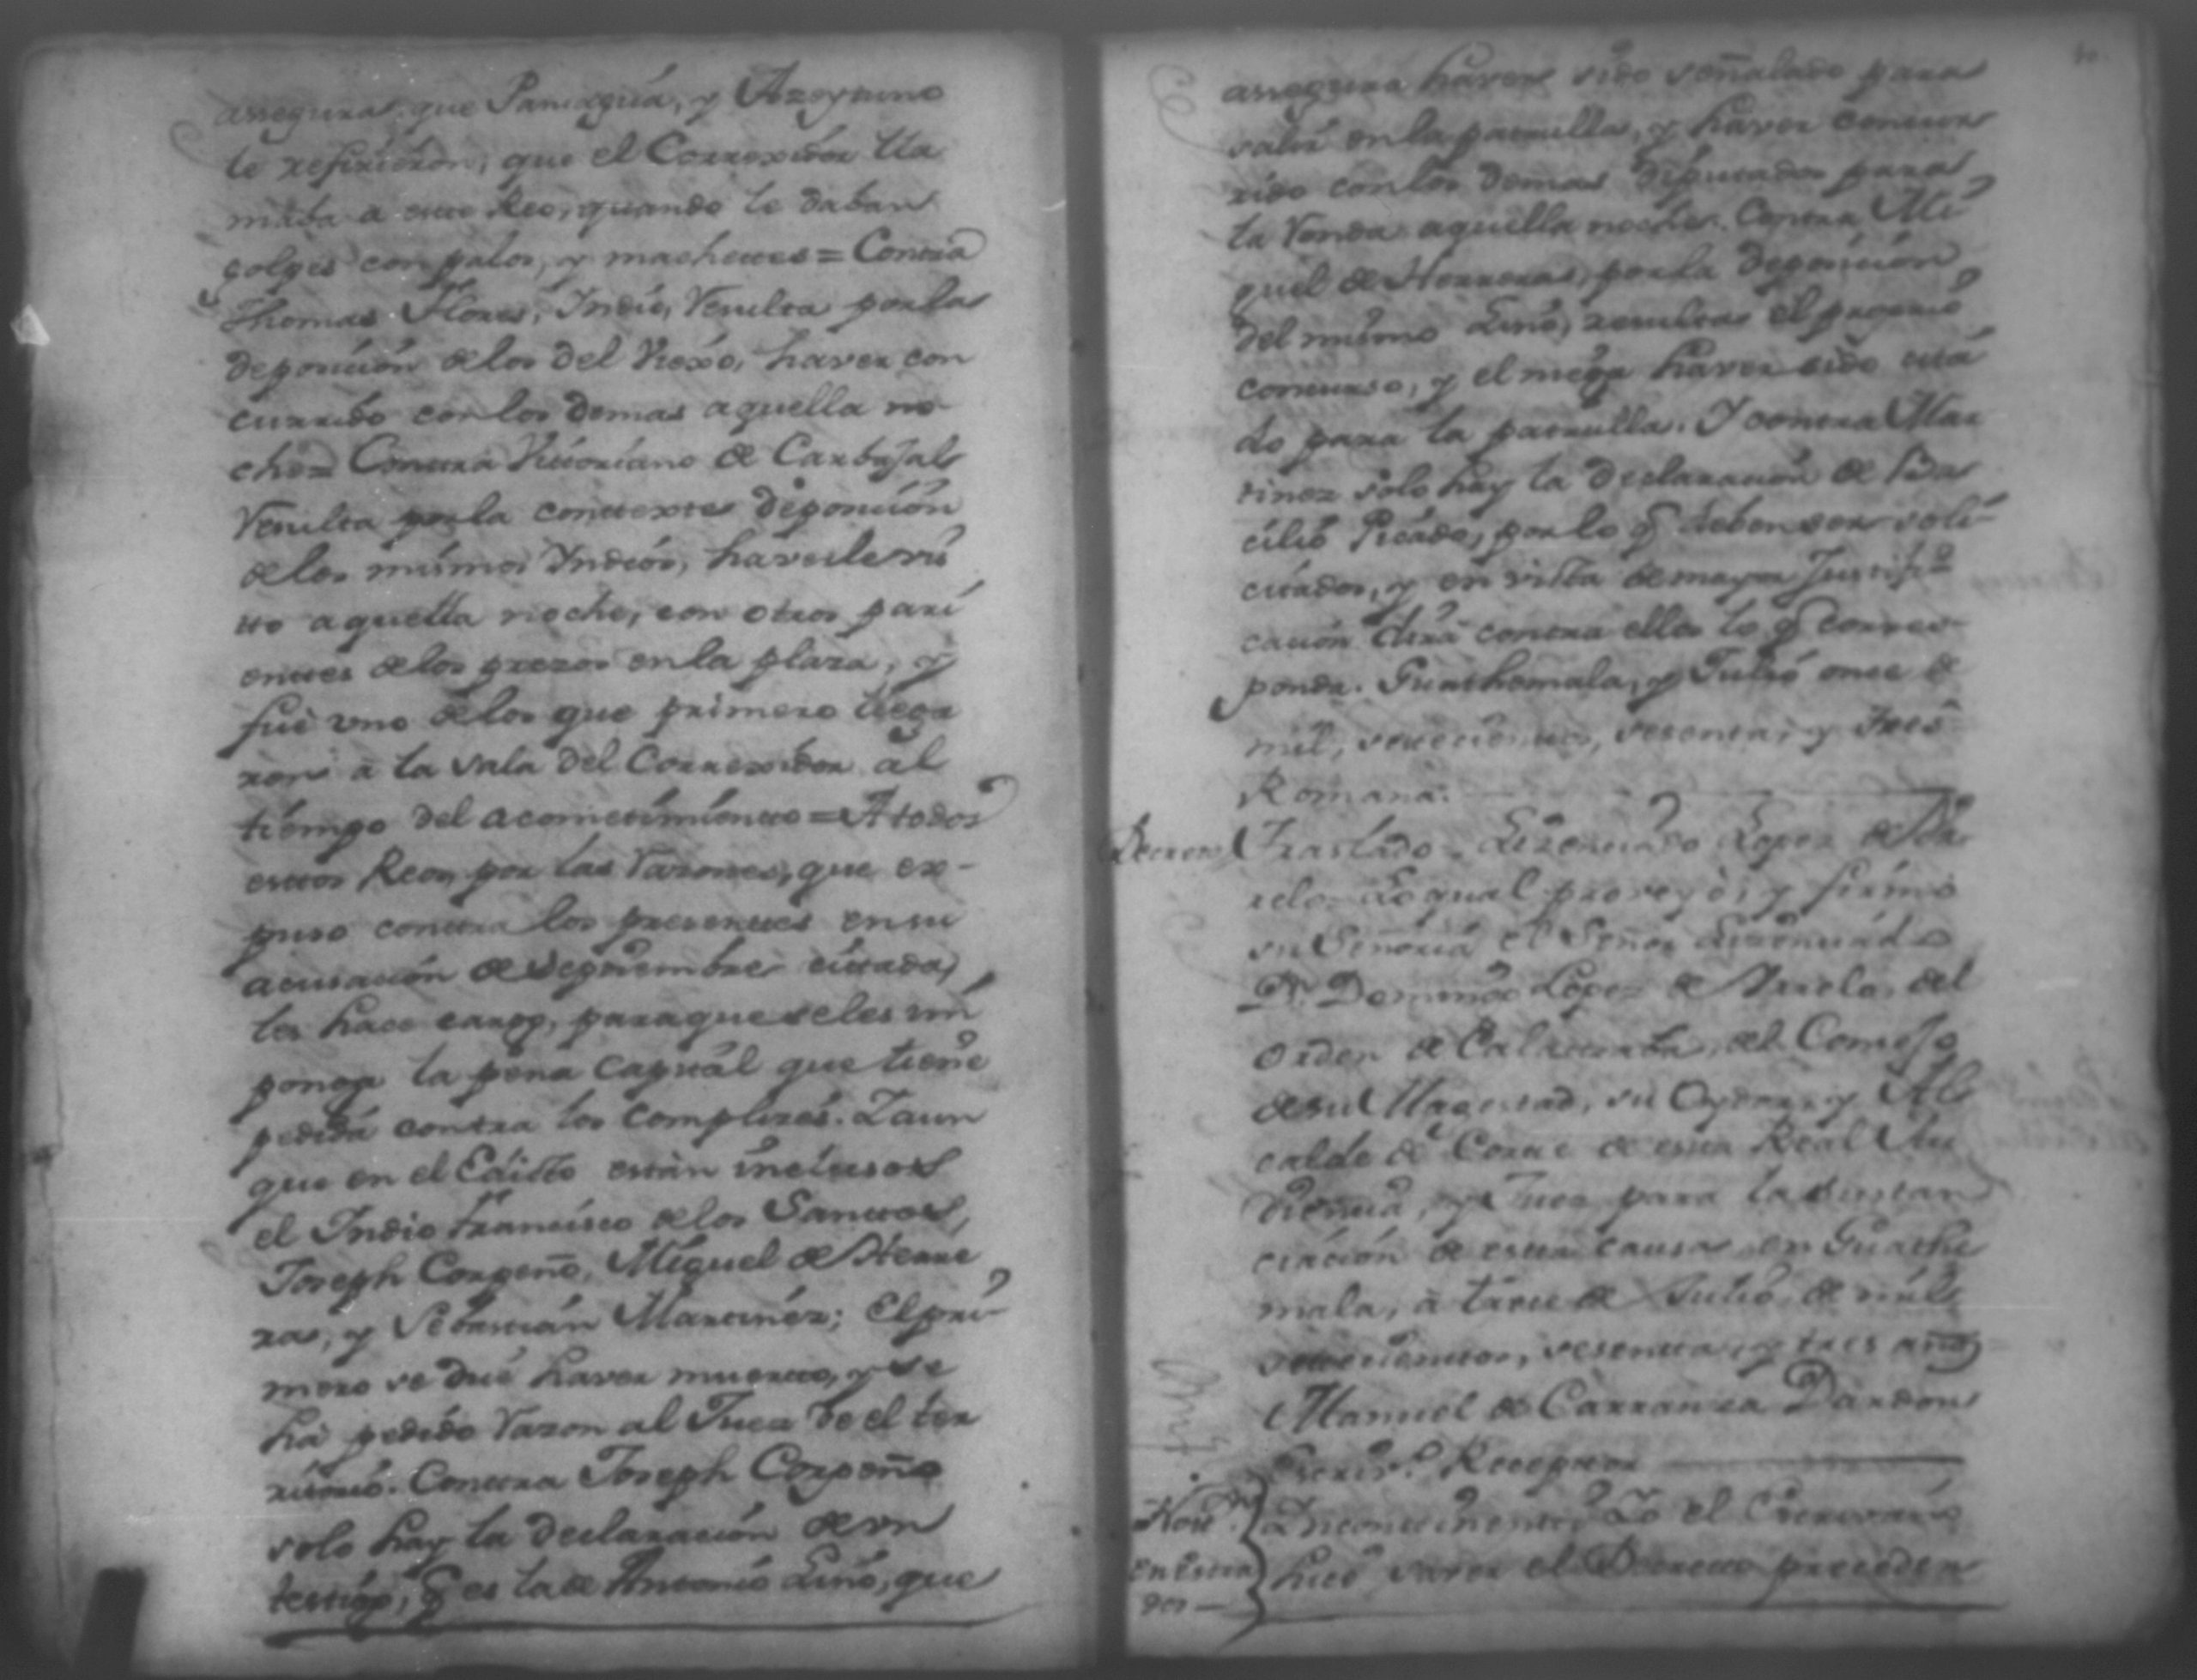 assegura que Paniagua, y Azeytuno
le refirieron, que el Correxidor lla
maba a este Reo, quando le daban
golpes con palos, y machetes = Contra
Thomas Flores, Indio, Resulta por la
deposicion de los del Viexo, haver con
currido con los demas aquella no
che = Contra Victoriano de Carbajal
Resulta por la contexte deposición
de los mismos Indios, haverle vis
to aquella noche, con otros pari
entes de los prezos en la plaza, y
fué uno de los que primero llega
ron à la sala del Correxidor al
tiempo del acometimiento = A todos
estos Reos por las razones, que ex-
puso contra los presentes en su
acusacion de Septiembre citada,
les hace cargo, para que se les im
ponga la pena capital que tiene
pedida contra los complizes. Y aun
que en el Edicto están inclusos
el Indio Francisco de los Santos,
Joseph Corpeño, Miguel de Herre
ras, y Sebastian Martinez; El pri-
mero se dice haver muerto, y se
hà pedido razon al Juez de el ter
ritorio. Contra Joseph Corpeño
solo hay la declaración de un
testigo, q̃ es la de Antonio Lino, que
assegura haver sido señalado para
salir en la patrulla, y haver concur
rido con los demas diputados para
la ronda aquella noche. Contra Mi
guel de Herreras, por la deposición
del mismo Lino, resulta el proprio
concurso, y el mesmo haver sido cita
do para la patrulla. Y contra Mar
tinez solo hay la declaracion de Ba
cilio Picado, por lo q̃ deben ser soli-
citados, y en vista de mayor Justifi
cacion dirá contra ellos lo q̃ corres-
ponda. Guathemala, y Julio once de
mil, setecientos, sesenta, y tres
Romana.
Decreto Traslado. Lizenciado Lopez de Ur
relo. Lo qual proveyò, y firmó
su Señoria el Señor Lizenciado
Dn. Domingo Lopez de Urrelo, del
Orden de Calatraba, del Consejo
de su Magestad, su Oydor, y Al
calde de Corte de esta Real Au
diencia, y Juez para la sustan
ciación de esta causa en Guathe
mala, à trece de Julio, de mil
setecientos, sesenta, y tres años
Manuel de Carranza Dardon
Escriv.o Receptor
Not.on en Estra dos — Incontinenti, Yo el Escrivano
hice saver el Decreto preceden